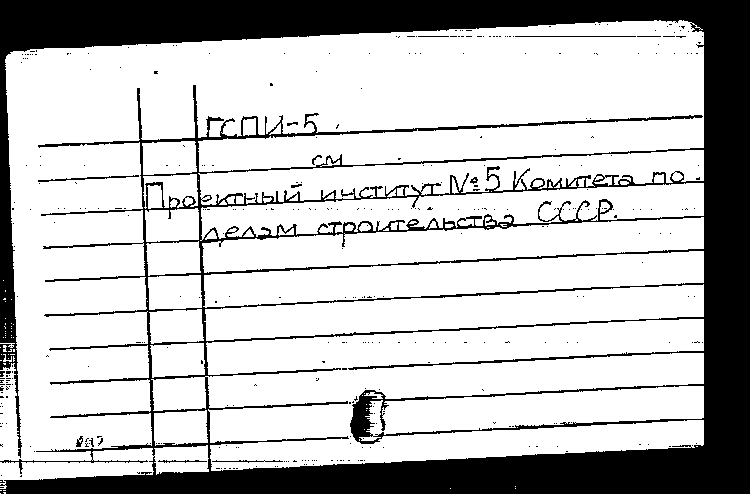 ГСПИ-5
см
Проектный институт №5 Комитета по
делам строительства СССР.